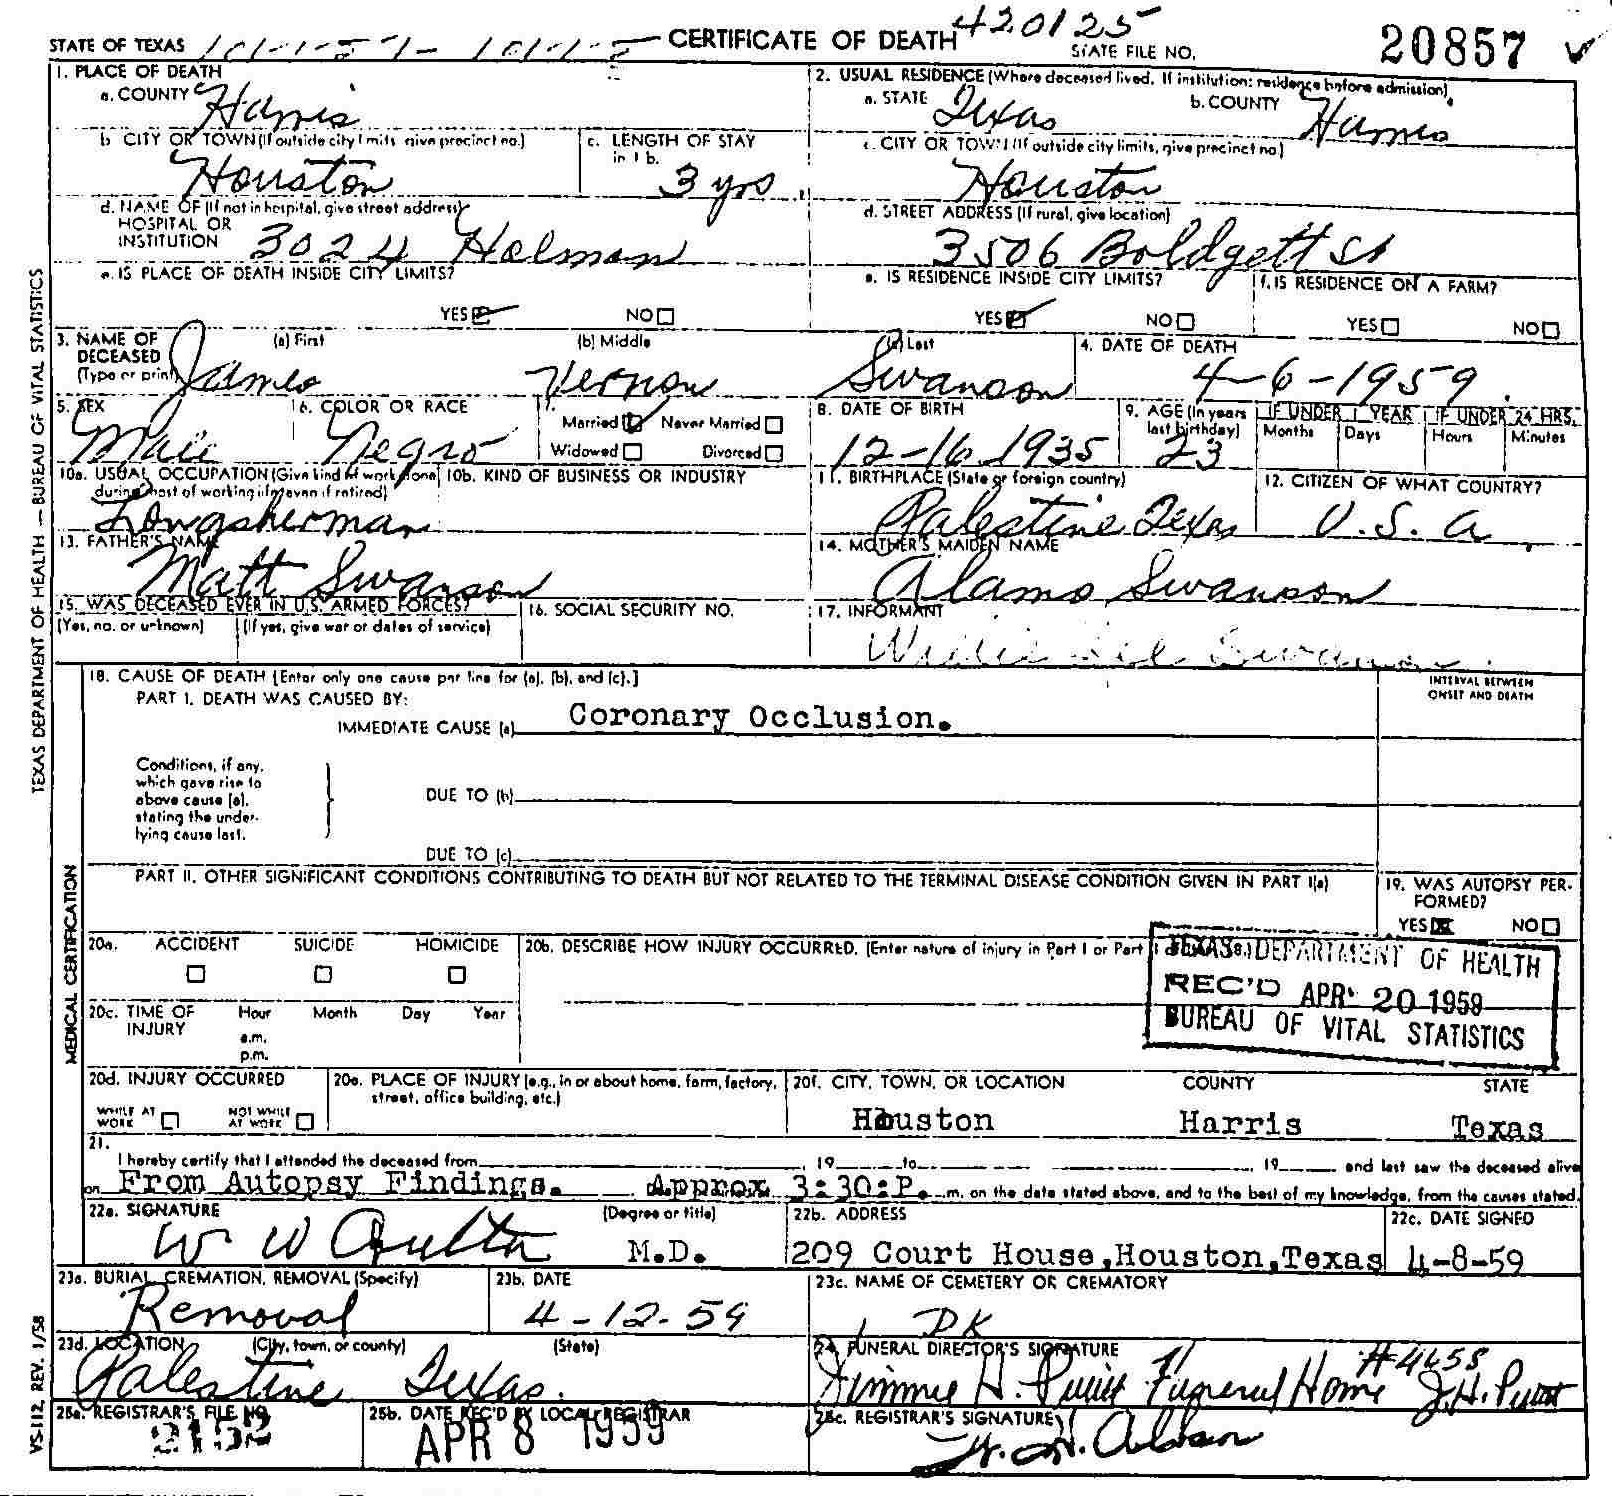 STATE OF TEXAS CERTIFICATE OF DEATH 420125 STATE FILE NO. 20857
1. PLACE OF DEATH
a. COUNTY Harris
2. USUAL RESIDENCE (Where deceased lived. If institution: residence before admission)
a. STATE Texas b. COUNTY Harris
b. CITY OR TOWN (If outside city limits give precinct no.) Houston
c. LENGTH OF STAY in 1 b. 3 yrs.
c. CITY OR TOWN (If outside city limits, give precinct no.) Houston
d. NAME OF (If not in hospital, give street address) HOSPITAL OR INSTITUTION 3024 Holman
d. STREET ADDRESS (If rural, give location) 3506 Boldgett St
e. IS PLACE OF DEATH INSIDE CITY LIMITS?
YES NO
e. IS RESIDENCE INSIDE CITY LIMITS?
YES NO
f. IS RESIDENCE ON A FARM?
YES NO
3. NAME OF DECEASED (Type or print)
(a) First (b) Middle (c) Last
James Vernon Swanson
4. DATE OF DEATH
4-6-1959.
5. SEX Male
6. COLOR OR RACE Negro
7. Married Never Married
Widowed Divorced
8. DATE OF BIRTH 12-16 1935
9. AGE (In years last birthday) 23
IF UNDER 1 YEAR Months Days
IF UNDER 24 HRS. Hours Minutes
10a. USUAL OCCUPATION (Give kind of work done during most of working life, even if retired) Longsherman
10b. KIND OF BUSINESS OR INDUSTRY
11. BIRTHPLACE (State or foreign country) Palestine Texas
12. CITIZEN OF WHAT COUNTRY? U.S.A.
13. FATHER'S NAME Matt Swanson
14. MOTHER'S MAIDEN NAME Alamo Swanson
15. WAS DECEASED EVER IN U.S. ARMED FORCES?
(Yes, no, or unknown) (If yes, give war or dates of service)
16. SOCIAL SECURITY NO.
17. INFORMANT Willie Lee Swanson
18. CAUSE OF DEATH [Enter only one cause per line for (a), (b), and (c).]
INTERVAL BETWEEN ONSET AND DEATH
PART I. DEATH WAS CAUSED BY:
IMMEDIATE CAUSE (a) Coronary Occlusion.
Conditions, if any,
which gave rise to
above cause (a),
stating the under-
lying cause last.
DUE TO (b)
DUE TO (c)
PART II. OTHER SIGNIFICANT CONDITIONS CONTRIBUTING TO DEATH BUT NOT RELATED TO THE TERMINAL DISEASE CONDITION GIVEN IN PART I(a)
19. WAS AUTOPSY PER-
FORMED?
YES NO
20a. ACCIDENT SUICIDE HOMICIDE
20b. DESCRIBE HOW INJURY OCCURRED. (Enter nature of injury in Part I or Part
TEXAS DEPARTMENT OF HEALTH
REC'D APR 20 1959
BUREAU OF VITAL STATISTICS
20c. TIME OF INJURY
Hour Month Day Year
a.m.
p.m.
20d. INJURY OCCURRED
WHILE AT WORK NOT WHILE AT WORK
20e. PLACE OF INJURY (e.g., in or about home, farm, factory, street, office building, etc.)
20f. CITY, TOWN, OR LOCATION COUNTY STATE
Houston Harris Texas
21.
I hereby certify that I attended the deceased from , 19 to , 19 and last saw the deceased alive
on From Autopsy Findings. Approx 3:30:P. m. on the date stated above, and to the best of my knowledge, from the causes stated.
22a. SIGNATURE (Degree or title)
W W M.D.
22b. ADDRESS
209 Court House, Houston, Texas
22c. DATE SIGNED
4-8-59
23a. BURIAL, CREMATION, REMOVAL (Specify)
Removal
23b. DATE
4-12-59
23c. NAME OF CEMETERY OR CREMATORY
DK
23d. LOCATION (City, town, or county) (State)
Palestine Texas.
24. FUNERAL DIRECTOR'S SIGNATURE #4658
Jimmie H. Funeral Home J.H.
25a. REGISTRAR'S FILE NO.
2152
25b. DATE REC'D BY LOCAL REGISTRAR
APR 8 1959
25c. REGISTRAR'S SIGNATURE
TEXAS DEPARTMENT OF HEALTH — BUREAU OF VITAL STATISTICS
MEDICAL CERTIFICATION
VS-112, REV. 1/58